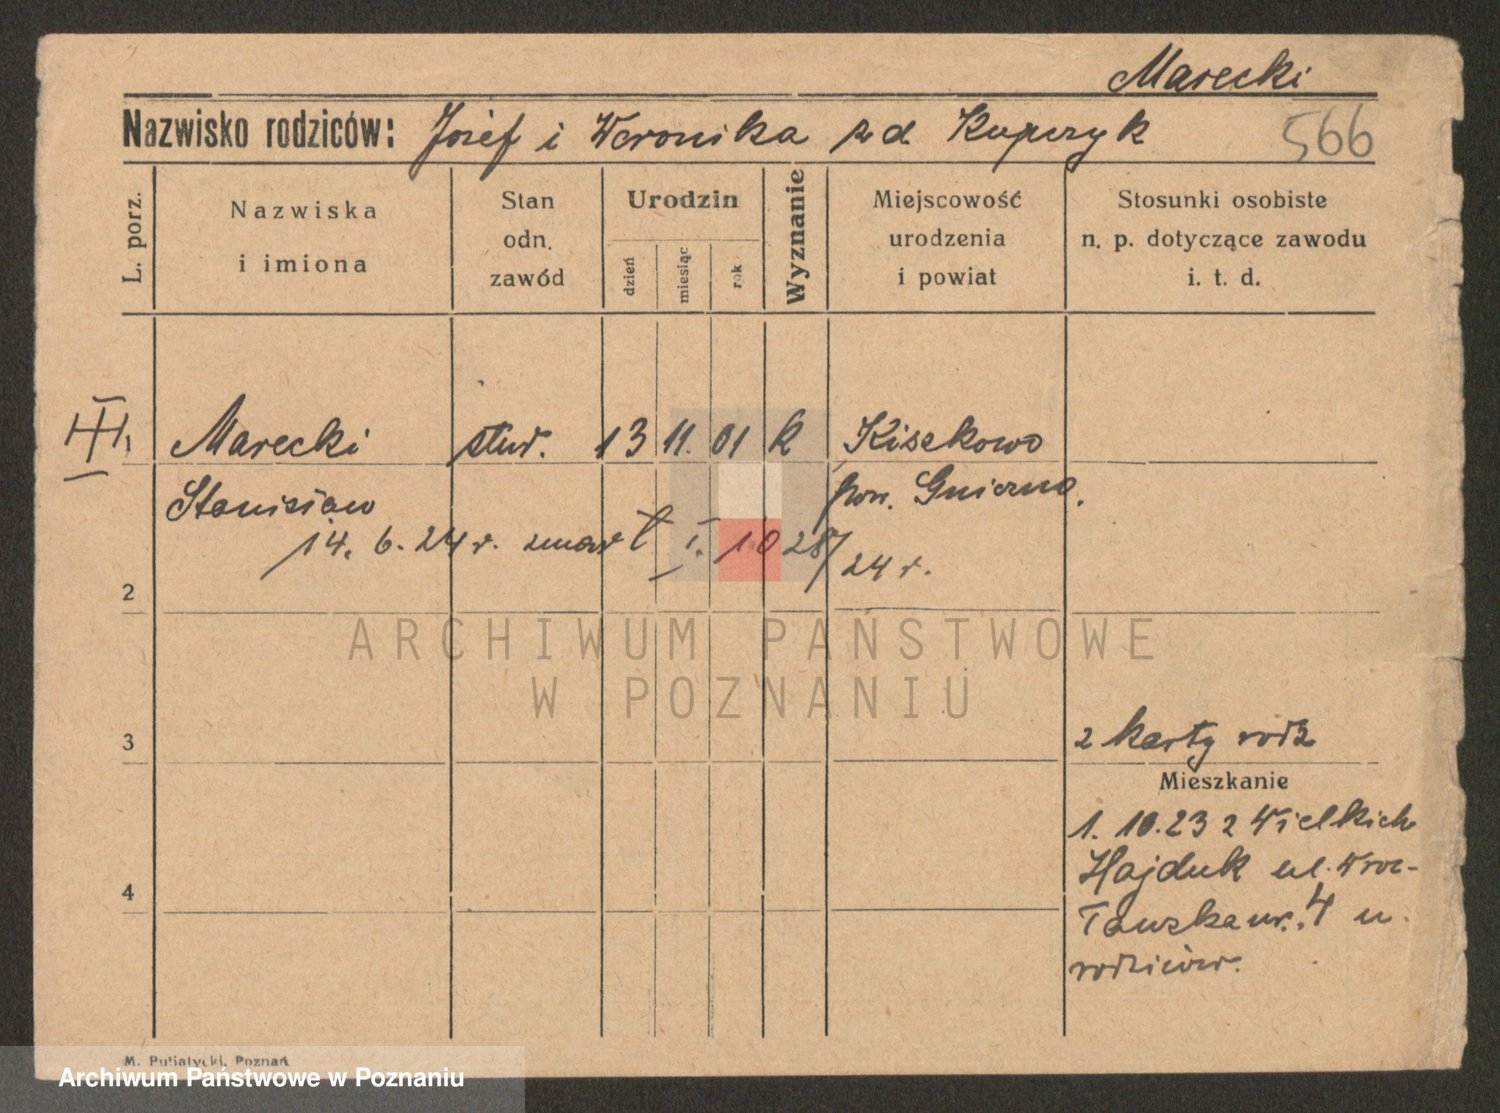 Marecki
Nazwisko rodziców: Józef i Weronika zd Kupczyk 566
L. porz.
Nazwiska
i imiona
Stan
odn.
zawód
Urodzin
dzień
miesiąc
rok
Wyznanie
Miejscowość
urodzenia
i powiat
Stosunki osobiste
n. p. dotyczące zawodu
i. t. d.
Marecki stud. 13 11. 01 k Kiszkowo
Stanisław pow. Gniezno.
14. 6. 24 r. zmarł I. 1028/24 r.
2
ARCHIWUM PAŃSTWOWE
W POZNANIU
3
2 karty rodz
Mieszkanie
1. 10. 23 z Wielkich
Hajduk ul. Wroc-
ławska nr. 4 u.
rodziców.
4
M. Putiatycki, Poznań
Archiwum Państwowe w Poznaniu